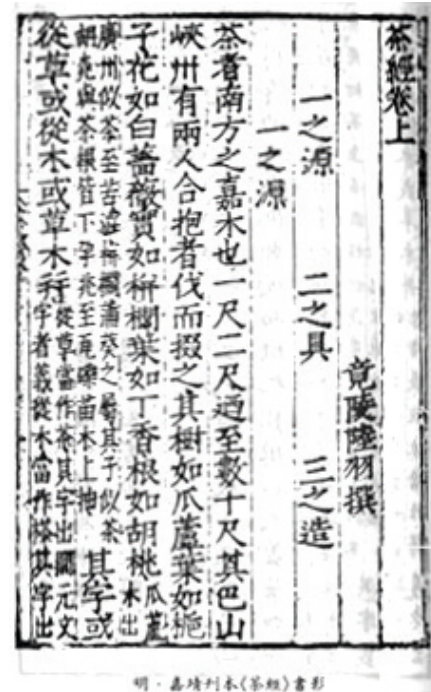 茶經卷上
竟陵陸羽撰
一之源 二之具 三之造
一之源
茶者南方之嘉木也一尺二尺迺至數十尺其巴山
峽州有兩人合抱者伐而掇之其樹如瓜蘆葉如梔
子花如白薔薇實如栟櫚葉如丁香根如胡桃 瓜蘆木出
廣州似茶至苦澁栟櫚蒲葵之屬其子似茶
胡桃與茶根皆下孕兆至瓦礫苗木上抽 其字或
從草或從木或草木并 從草當作茶其字出開元文
字者義從木當作搽其字出
明·嘉靖刊本《茶經》書影